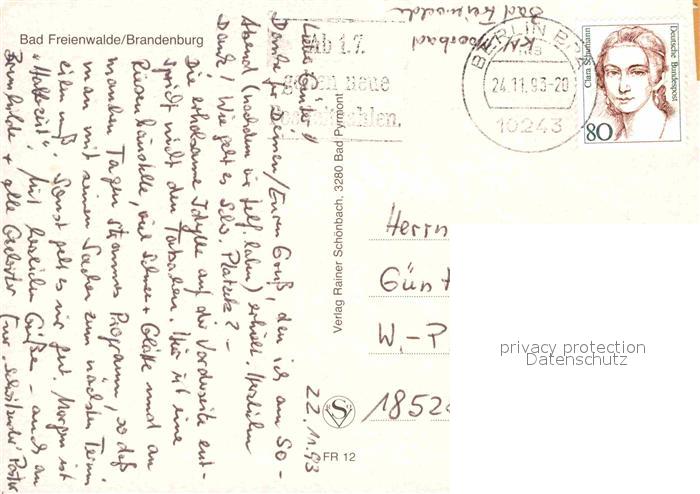 Bad Freienwalde/Brandenburg
Moorbad
Bad Freienwalde
Ab 1.7.
gelten neue
Postleitzahlen.
BERLIN
24.11.93-20
10243
Clara Schumann
Deutsche Bundespost
80
Lieber Günter!
Danke für Deinen/Euren Gruß, den ich am SO-
Abend (nachdem wir telef. haben) erhielt. Herzlichen
Dank! Wie geht es Schw. ?-
Die erholsame Idylle auf der Vorderseite ent-
spricht nicht den Tatsachen. Hier ist eine
Riesenbaustelle, viel Schnee + Glätte und an
manchen Tagen strammes Programm, so daß
man mit seinen Sachen zum nächsten Termin
eilen muß. Sonst geht es mir gut. Morgen ist
"Halbzeit". Mit herzlichen Grüßen - auch an
Brunhilde + alle
22.11.93
Verlag Rainer Schönbach, 3280 Bad Pyrmont
S
FR 12
Herrn
Günt
W.-P
1852
privacy protection
Datenschutz